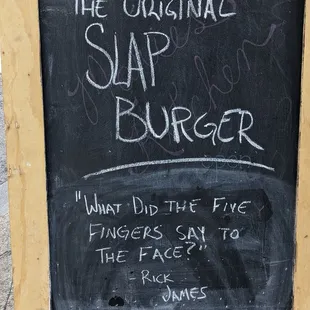 THE ORIGINAL
SLAP
BURGER
"WHAT DID THE FIVE
FINGERS SAY TO
THE FACE?"
- RICK
JAMES